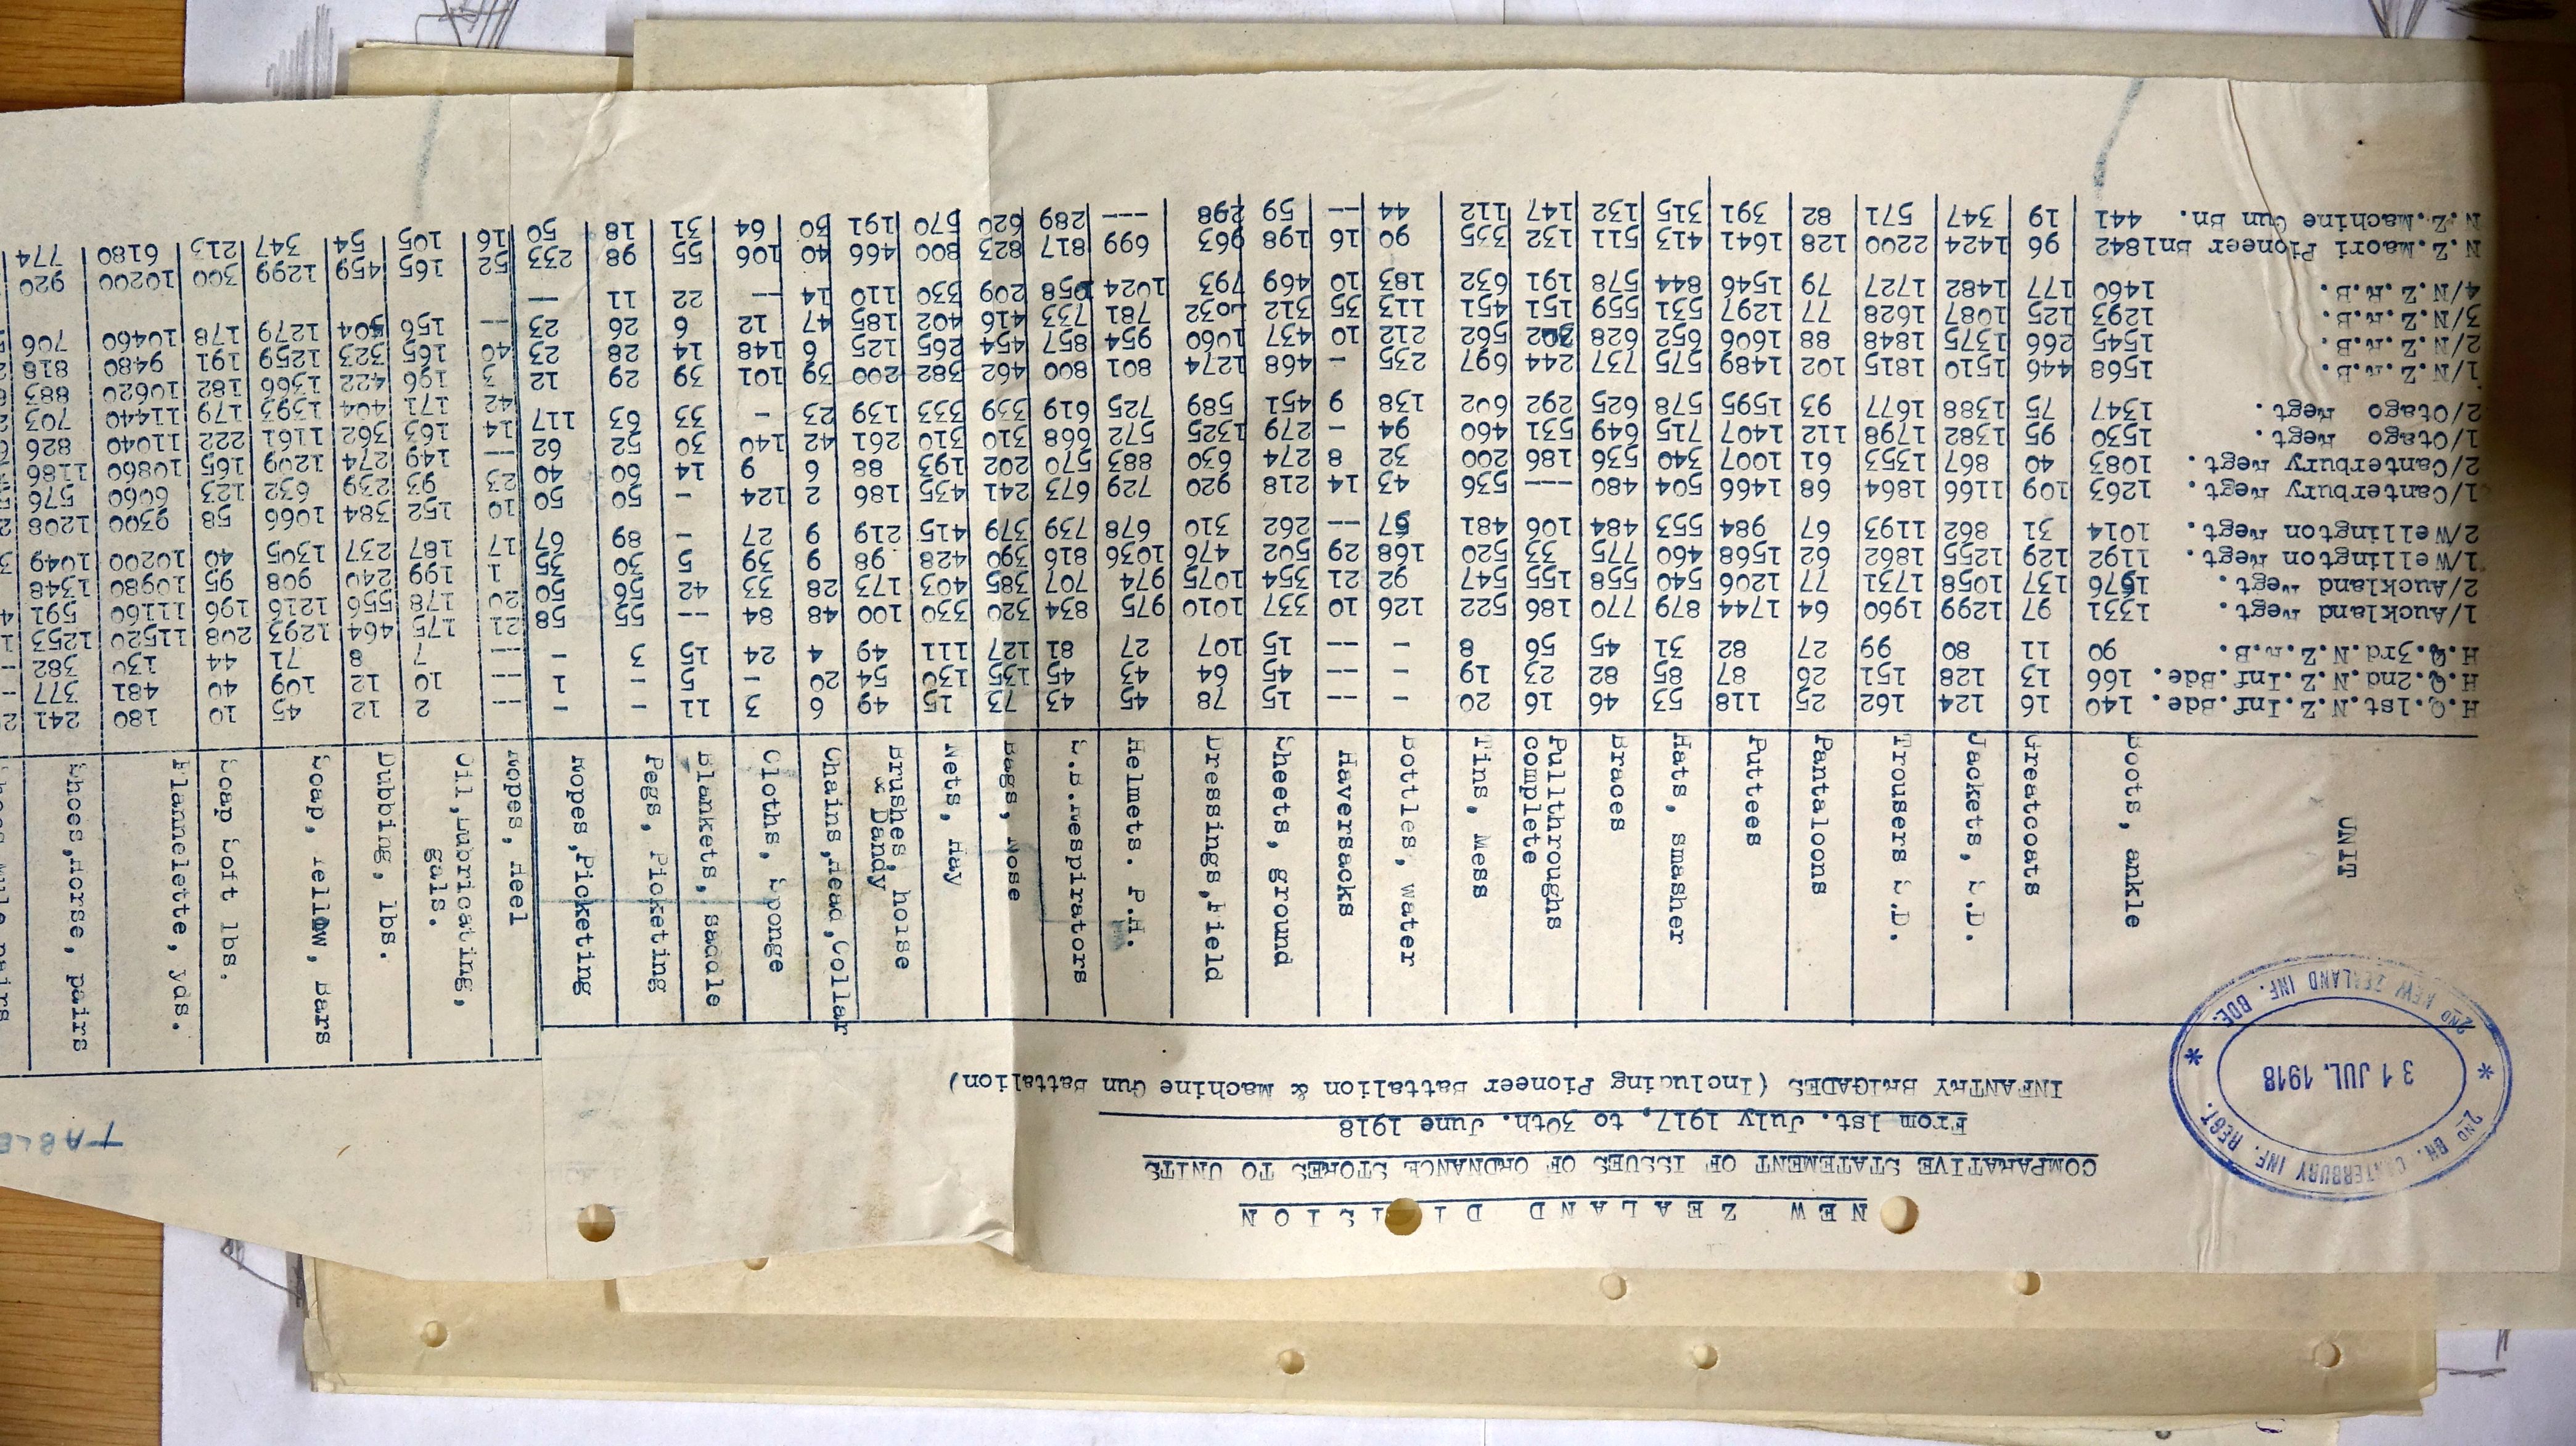 TABLE
NEW ZEALAND DIVISION
COMPARATIVE STATEMENT OF ISSUES OF ORDNANCE STORES TO UNITS
From 1st. July 1917, to 30th. June 1918
INFANTRY BRIGADES (Including Pioneer Battalion & Machine Gun Battalion)
2ND BN. CANTERBURY INF. REGT.
31 JUL. 1918
2ND NEW ZEALAND INF. BDE.
UNIT
Boots, ankle
Greatcoats
Jackets, S.D.
Trousers S.D.
Pantaloons
Puttees
Hats, smasher
Braces
Pullthroughs
complete
Tins, Mess
Bottles, water
Haversacks
Sheets, ground
Dressings,Field
Helmets. P.H.
S.B.Respirators
Bags, Nose
Nets, Hay
Brushes, horse
& Dandy
Chains,Head,Collar
Cloths, Sponge
Blankets, saddle
Pegs, Picketing
Ropes,Picketing
Ropes, Heel
Oil,Lubricating,
gals.
Dubbing, lbs.
Soap, Yellow, Bars
Soap Soft lbs.
Flannelette, yds.
Shoes,Horse, pairs
Shoes Mule pairs
H.Q.1st.N.Z.Inf.Bde. 140 16 124 162 25 118 53 46 16 20 - -- 15 78 45 43 73 15 49 6 3 11 - - --- 2 12 45 10 180 241
H.Q.2nd.N.Z.Inf.Bde. 166 13 128 151 26 87 85 82 23 19 - -- 45 64 43 45 135 130 54 20 - 5 - 1 --- 10 12 109 40 481 377
H.Q.3rd.N.Z.R.B. 90 11 80 99 27 82 31 45 56 8 - -- 15 107 27 81 127 111 49 4 24 15 3 - --- 7 8 71 44 130 382
1/Auckland Regt. 1331 97 1299 1960 64 1744 879 770 186 522 126 10 337 1010 975 834 320 330 100 48 84 -- 55 58 21 175 464 1293 208 11520 1253
2/Auckland Regt. 1576 137 1058 1731 77 1206 540 558 155 547 92 21 354 1075 974 707 385 403 173 28 33 42 56 50 20 178 556 1216 196 11160 591
1/Wellington Regt. 1192 129 1255 1862 62 1568 460 775 33 520 168 29 502 476 1036 816 390 428 98 9 39 5 30 35 1 199 240 908 95 10980 1348
2/Wellington Regt. 1014 31 862 1193 67 984 553 484 106 481 57 -- 262 310 678 739 379 415 219 9 27 - 89 67 17 187 237 1305 40 10200 1049
1/Canterbury Regt. 1263 109 1166 1864 68 1466 504 480 --- 536 43 14 218 920 729 673 241 435 186 2 124 - 50 50 10 152 384 1066 58 9300 1208
2/Canterbury Regt. 1083 40 867 1353 61 1007 340 536 186 200 32 8 274 630 883 570 202 193 88 6 9 14 60 40 23 93 239 632 123 6060 576
1/Otago Regt. 1530 95 1382 1798 112 1407 715 649 531 460 94 - 279 1325 572 668 310 310 261 42 140 30 52 62 -- 149 274 1209 165 10860 1186
2/Otago Regt. 1347 75 1388 1677 93 1595 578 625 292 602 138 9 451 589 725 619 339 333 139 23 - 33 63 117 14 163 362 1161 222 11040 826
1/N.Z.R.B. 1568 446 1510 1815 102 1489 575 737 244 697 235 - 468 1274 801 800 462 382 200 39 101 39 29 12 42 171 404 1393 179 11440 703
2/N.Z.R.B. 1545 266 1375 1848 88 1606 652 628 302 562 212 10 437 1060 954 857 454 265 125 6 148 14 28 23 3 196 422 1366 182 10620 883
3/N.Z.R.B. 1293 125 1087 1628 77 1297 531 559 151 451 113 35 312 1032 781 733 416 402 185 47 12 6 26 23 40 165 323 1259 191 9480 818
4/N.Z.R.B. 1460 177 1482 1727 79 1546 844 578 191 632 183 10 469 793 1024 058 209 330 110 14 -- 22 11 -- -- 156 504 1279 178 10460 706
N.Z.Maori Pioneer Bn1842 96 1424 2200 128 1641 413 511 132 335 90 16 198 963 699 817 823 800 466 40 106 55 98 233 52 165 459 1299 300 10200 920
N.Z.Machine Gun Bn. 441 19 347 571 82 391 315 132 147 112 44 -- 59 298 --- 289 620 570 191 30 64 31 18 50 16 105 54 347 213 6180 774